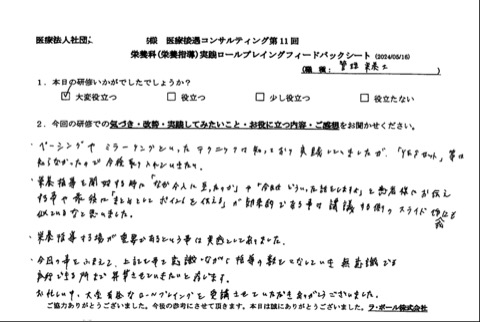 医療法人社団 殿 医療接遇コンサルティング第11回
栄養科(栄養指導)実践ロールプレイングフィードバックシート (2024/05/16)
(職種: 管理栄養士)
1.本日の研修いかがでしたでしょうか?
☑大変役立つ □役立つ □少し役立つ □役立たない
2.今回の研修での気づき・改善・実践してみたいこと・お役に立つ内容・ご感想をお聞かせください。
・ペーシングやミラーリングといったテクニックは知っており実践していましたが、「YESセット」等は
知らなかったので今後取り入れていきたい。
・栄養指導を開始する時に「なぜ今人に 」や「今日はどういった話をします」と患者様にお伝え
する事や最後に「まとめとしてポイントを伝える」が効果的である事は講議する側のスライド
似ているなと思いました。
・栄養指導する場が重要であるという事は実感としてありました。
・今回の事をふまえて、上記の事を意識しながら指導の数をこなしていき無意識でも
実行できる所まで昇華させていきたいと感じます。
お忙しい中、大変有益なロールプレイングを受講させていただきありがとうございました。
ご協力ありがとうございました。今後の参考にさせて頂きます。本日は誠にありがとうございました。ラ・ポール株式会社